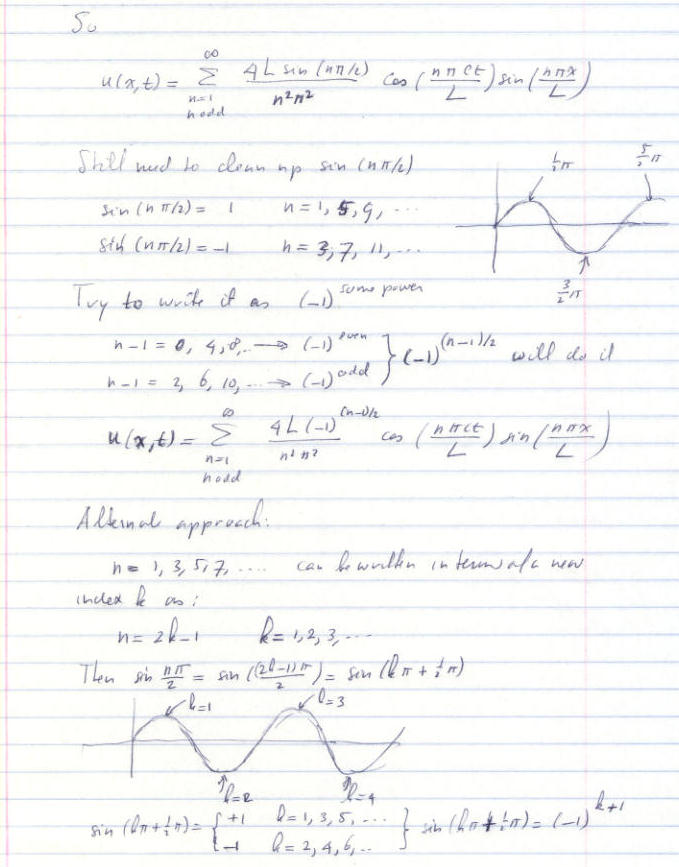 So
u(x,t) = Σ_{n=1, n odd}^{∞} 4L sin(nπ/2) / n²π² cos(nπct/L) sin(nπx/L)
Still need to clean up sin(nπ/2)
½π
5/2 π
sin(nπ/2) = 1 n = 1, 5, 9, ...
sin(nπ/2) = -1 n = 3, 7, 11, ...
3/2 π
Try to write it as (-1)^{some power}
n-1 = 0, 4, 8, ... → (-1)^{even}
n-1 = 2, 6, 10, ... → (-1)^{odd} } (-1)^{(n-1)/2} will do it
u(x,t) = Σ_{n=1, n odd}^{∞} 4L(-1)^{(n-1)/2} / n²π² cos(nπct/L) sin(nπx/L)
Alternate approach:
n = 1, 3, 5, 7, .... can be written in terms of a new
index k as:
n = 2k-1 k = 1, 2, 3, ...
Then sin nπ/2 = sin((2k-1)π/2) = sin(kπ + ½π)
k=1 k=3
k=2 k=4
sin(kπ + ½π) = { +1 k = 1, 3, 5, ...
-1 k = 2, 4, 6, .. } sin(kπ + ½π) = (-1)^{k+1}